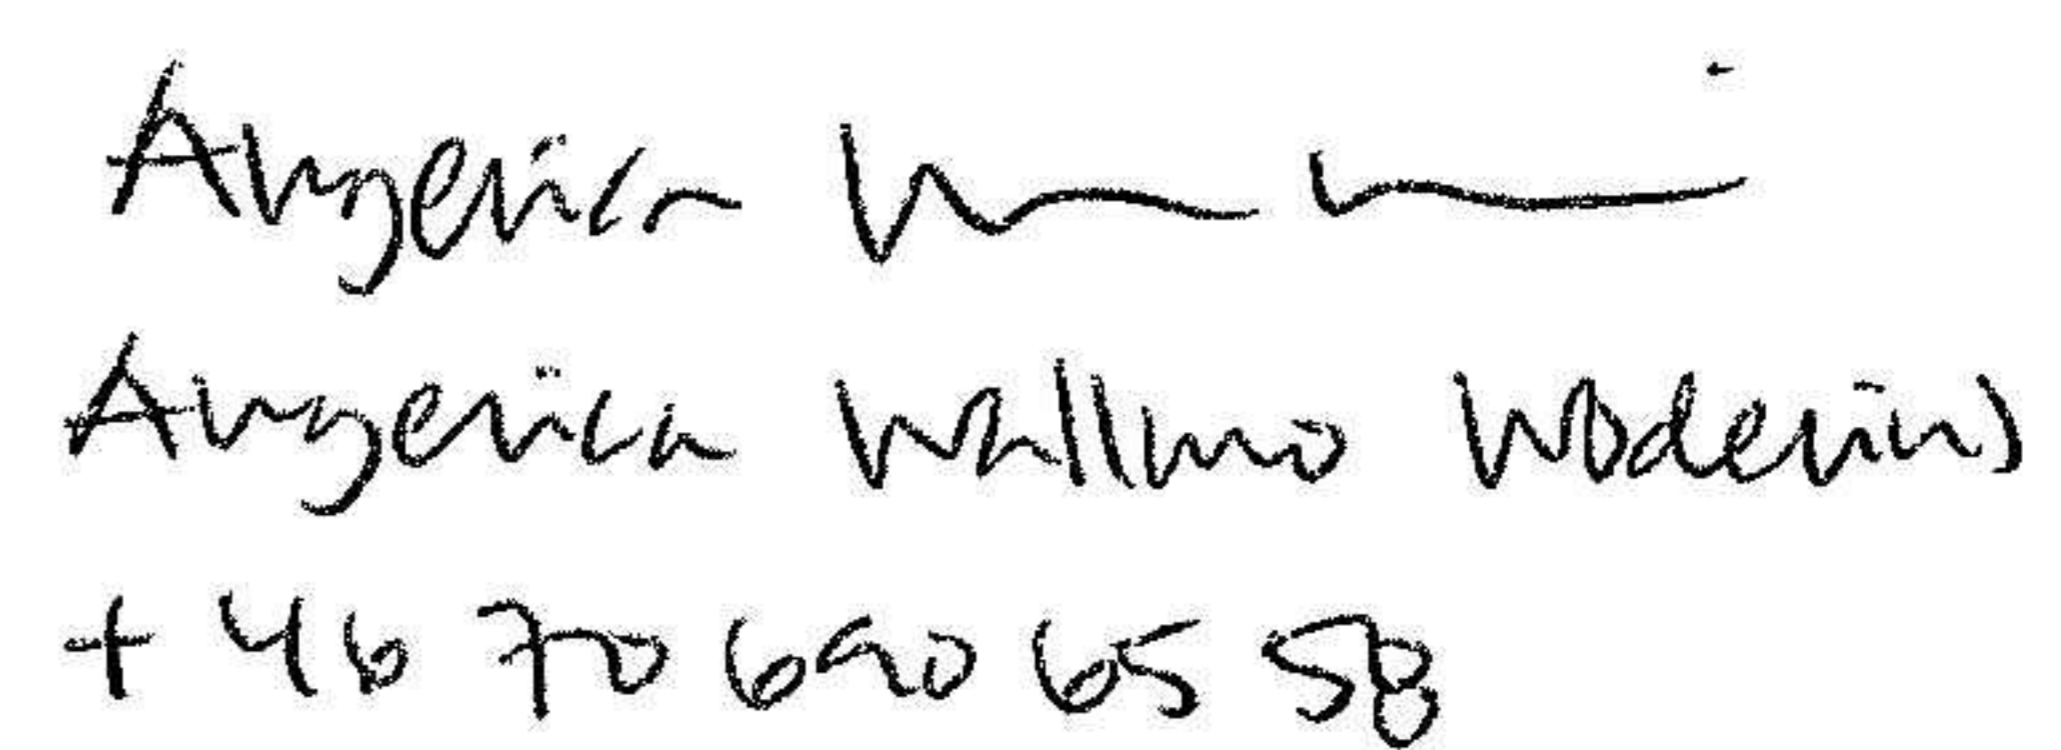 Angerica
Angerica Wallmo Woderius
+ 46 70 690 65 58